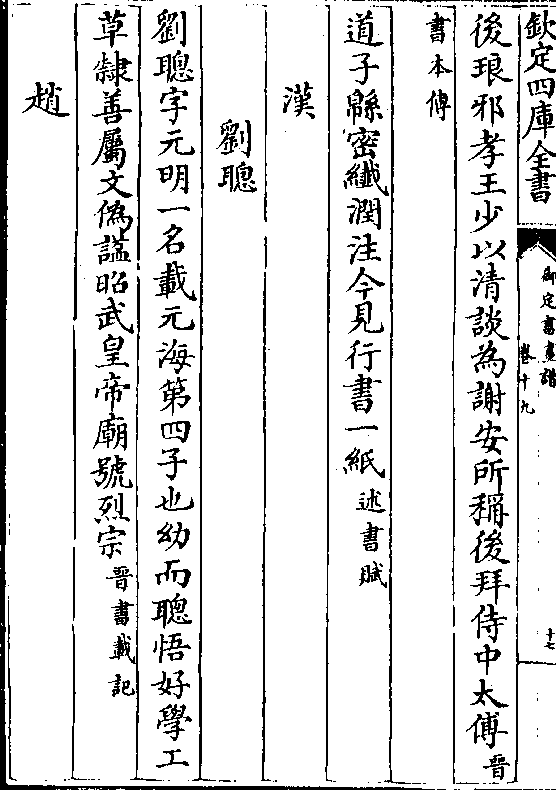 欽定四庫全書
御定書畫譜
卷十九
十七
後琅邪孝王少以清談為謝安所稱後拜侍中太傅晉
書本傳
道子緜密纎潤注今見行書一紙述書賦
漢
劉聰
劉聰字元明一名載元海第四子也幼而聰悟好學工
草隸善屬文偽諡昭武皇帝廟號烈宗晉書載記
趙